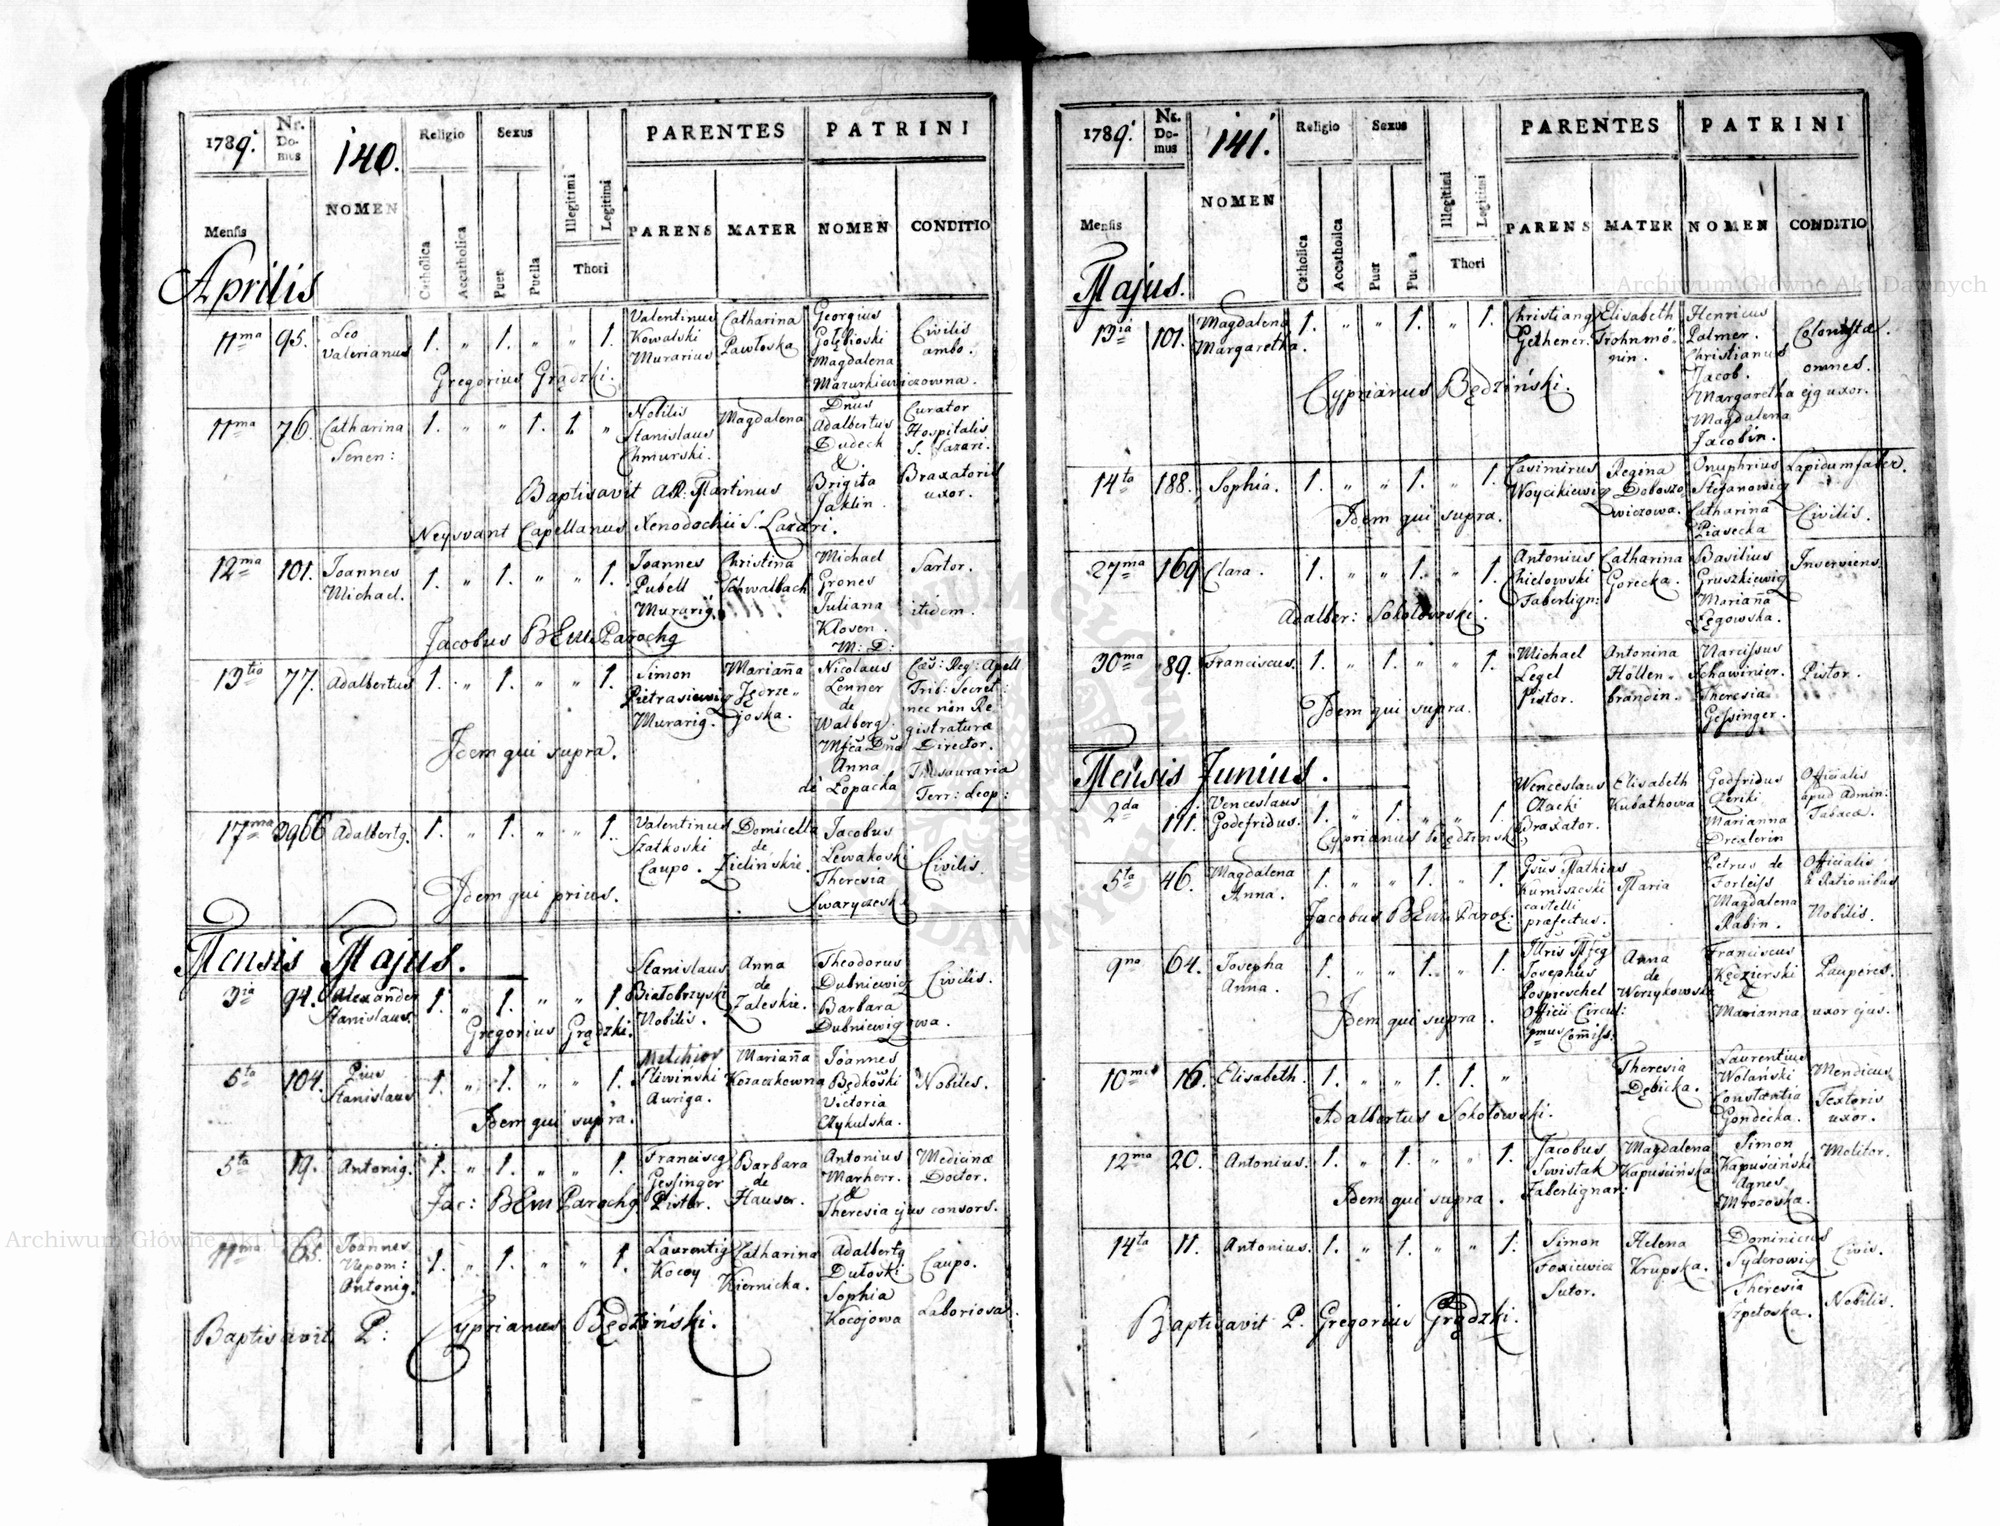 1789.
Nr. Do- mus
140.
Religio
Sexus
PARENTES
PATRINI
Mensis
NOMEN
Catholica
Accatholica
Puer
Puella
Illegitimi
Legitimi
Thori
PARENS
MATER
NOMEN
CONDITIO
Aprilis
11ma 95. Leo Valerianus 1. " 1. " " 1. Valentinus Kowalski Murarius Catharina Pawłoska Georgius Gołębioski Magdalena Mazurkiewiczowna. Civilis ambo.
Gregorius Grądzki.
11ma 76. Catharina Senen: 1. " " 1. 1. " Nobilis Stanislaus Chmurski. Magdalena Dnus Adalbertus Dudeck & Brigita Jaklin. Curator Hospitalis S. Lazari. Braxatoris uxor.
Baptisavit AR: Martinus
Neysvant Capellanus Xenodochii S. Lazari.
12ma 101. Joannes Michael. 1. " 1. " " 1. Joannes Pubell Murarig. Christina Schwalbach Michael Grones Juliana Klosen. M: D: Sartor. itidem.
Jacobus BEm Parochg
13tio 77. Adalbertus 1. " 1. " " 1. Simon Pietrasiewig Murarig. Marianna Jędrze- joska. Nicolaus Lenner de Walberg. Mfca Dna Anna de Łopacka Cæs: Reg: Apell Trib: Secret: nec non Re- gistraturæ Director. Thesauraria Terr: Leop:
Idem qui supra.
17ma 3966 Adalbertg. 1. " 1. " " 1. Valentinus Szatkoski Caupo. Domicella de Zielińskie. Jacobus Lewakoski Theresia Swaryczesk Civilis.
Idem qui prius.
Mensis Majus.
3ia 94. Alexander Stanislaus. 1. " 1. " " 1. Stanislaus Białobrzyski Nobilis. Anna de Zaleskie. Theodorus Dubniewicz Barbara Dubniewigowa. Civilis.
Gregorius Grądzki.
5ta 104. Pius Stanislaus 1. " 1. " " 1. Melchior Sliwiński Auriga. Marianna Kozaczkowna Joannes Będkoski Victoria Czykulska. Nobiles.
Idem qui supra.
5ta 19. Antonig. 1. " 1. " " 1. Franciscg Gessinger Pistor. Barbara de Hauser. Antonius Marherr. & Theresia ejus consors. Medicinæ Doctor.
Jac: BEm Parochg
11ma 65. Joannes Nepom: Antonig. 1. " 1. " " 1. Laurentig Kocoy Catharina Kiernicka. Adalbertg Dutoski Sophia Kocojowa Caupo. Laboriosa.
Baptisavit P: Cyprianus Będziński.
1789.
Nr. Do- mus
141.
Religio
Sexus
PARENTES
PATRINI
Mensis
NOMEN
Catholica
Accatholica
Puer
Puella
Illegitimi
Legitimi
Thori
PARENS
MATER
NOMEN
CONDITIO
Majus.
13ia 101. Magdalena Margaretha. 1. " " 1. " 1. Christiang Gethener. Elisabeth Frohnmö- gin. Henricus Palmer. Christianus Jacob. Margaretha ejg uxor. Magdalena Jacobin. Colonistæ omnes.
Cyprianus Będziński.
14ta 188. Sophia. 1. " " 1. " 1. Casimirus Woycikiewig Regina Doboszo- wiczowa. Onuphrius Stefanowig Catharina Piasecka Lapidumfaber. Civilis.
Idem qui supra.
27ma 169 Clara. 1. " " 1. " 1. Antonius Chielowski Faberlign: Catharina Gorecka. Basilius Gruszkiewig Marianna Łęgowska. Inserviens.
Adalber: Sokołowski.
30ma 89. Franciscus. 1. " 1. " " 1. Michael Legel Pistor. Antonina Höllen- brandin. Narcissus Schawinier. Theresia Gessinger. Pistor.
Idem qui supra.
Mensis Junius.
2da 111. Venceslaus Godefridus. 1. " 1. " " 1. Wenceslaus Czacki Braxator. Elisabeth Kubathowa Godfridus Marianna Drexlerin Officialis apud Admin: Tabacæ.
Cyprianus Będzinski
5ta 46. Magdalena Anna. 1. " " 1. " 1. Gsus Mathias Kumiszeski castelli præfectus. Maria Petrus de Forleiss Magdalena Rabin. Officialis a Rationibus Nobilis.
Jacobus BEm Paroc:
9no 64. Josepha Anna. 1. " " 1. " 1. Josephus Pospreschel Officii Circul: 1mus Commiss: Anna de Werzykowska Franciscus Kędzierski & Marianna uxor ejus. Pauperes.
Idem qui supra.
10ma 16. Elisabeth. 1. " " 1. 1. " Theresia Dębicka. Laurentius Wolański Constantia Gondecka. Mendicus Textoris uxor.
Adalbertus Sokołowski.
12ma 20. Antonius. 1. " 1. " " 1. Jacobus Swistak Faberlignar: Magdalena Kapuścińska Simon Kapuściński Agnes Mrozoska. Molitor.
Idem qui supra.
14ta 11. Antonius. 1. " 1. " " 1. Simon Foxiewicz Sutor. Helena Krupska. Dominicus Syderowig Theresia Szpetoska. Civis. Nobilis.
Baptisavit P. Gregorius Grądzki.
Archiwum Główne Akt Dawnych
Archiwum Główne Akt Dawnych